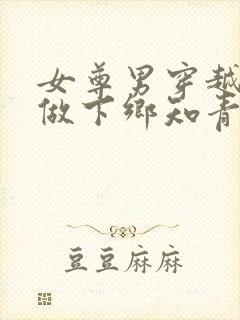 女尊男穿越
做下乡知青
豆豆麻麻